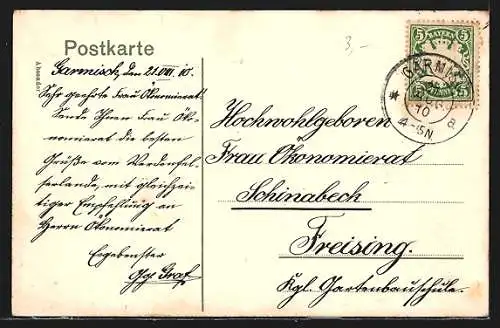 Postkarte
3.-
Absender
Garmisch, den 21.VIII.10.
Sehr geehrte Frau Ökonomierat!
Sende Ihnen Frau Öko-
nomierat die besten
Grüße vom Werdenfel-
serlande, mit gleichzei-
tiger Empfehlung an
Herrn Ökonomierat
Ergebenster
Gg. Graf
5 BAYERN 5
GARMISCH
10
4-5N.
Hochwohlgeboren
Frau Ökonomierat
Schinabeck
Freising.
Kgl. Gartenbauschule.